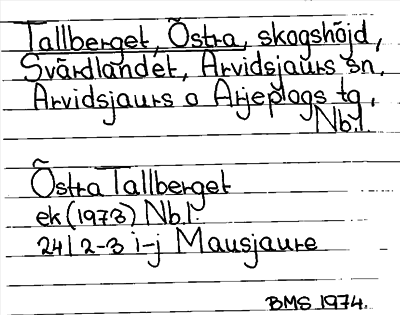 Tallberget, Östra, skogshöjd,
Svärdlandet, Arvidsjaurs sn,
Arvidsjaurs o Arjeplogs tg,
Nb.l.
Östra Tallberget
ek (1973) Nb.l.
24I 2-3 i-j Mausjaure
BMS 1974.